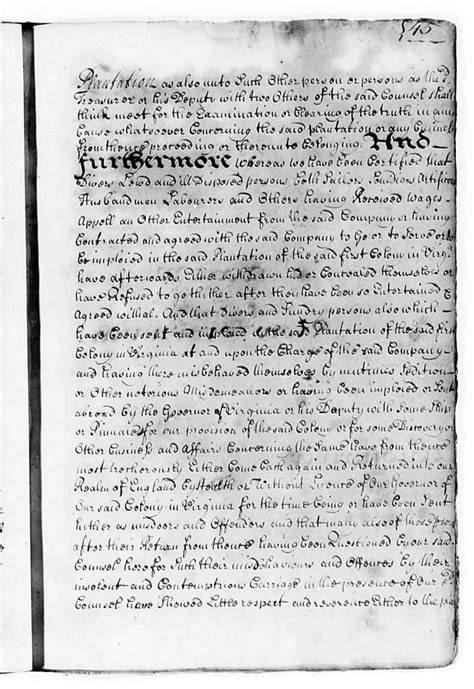 545
Plantation as also unto Such Other person or persons as the sd
Treasurer or his Deputy with two Others of the said Counsel shall
think meet for the Examination or Clearing of the truth in any
Cause whatsoever Concerning the said plantation or any business
from thence proceeding or thereunto belonging. And
furthermore Whereas we have been Certified that
Divers Lewd and ill disposed persons both Sailers Souldiers Artificers
Husbandmen Labourers and Others having Received wages
Apparell an Other Entertainment from the said Company or having
Contracted and agreed with the said Company to Go or to Serve or to
be imploied in the said Plantation of the said first Colony in Virga
have afterwards Either withdrawn hid or Concealed themselves or
have Refused to go thither after they have been so Entertained &
Agreed withal. And that Divers and Sundry persons also which
have been sent and imploied in the said Plantation of the said first
Colony in Virginia at and upon the Charge of the said Company
and having there misbehaved themselves by mutinies Sedition
or Other notorious Misdemeanors or having been imploied or Sent
abroad by the Governor of Virginia or his Deputy with Some Ship
or Pinnace for our provision of the said Colony or for some Discovery or
Other business and Affairs Concerning the Same have from thence
most trecherously Either Come back again and Returned into our
Realm of England by Stealth or Without Licence of Our Governor of
Our said Colony in Virginia for the time being or have been Sent
hither as misdoers and Offenders and that many also of those persons
after their Return from thence having been Questioned by our said
Counsel here for Such their misbehaviours and Offences by their
insolent and Contemptuous Carriage in the presence of Our sd
Counsel have Shewed Little respect and reverence Either to the